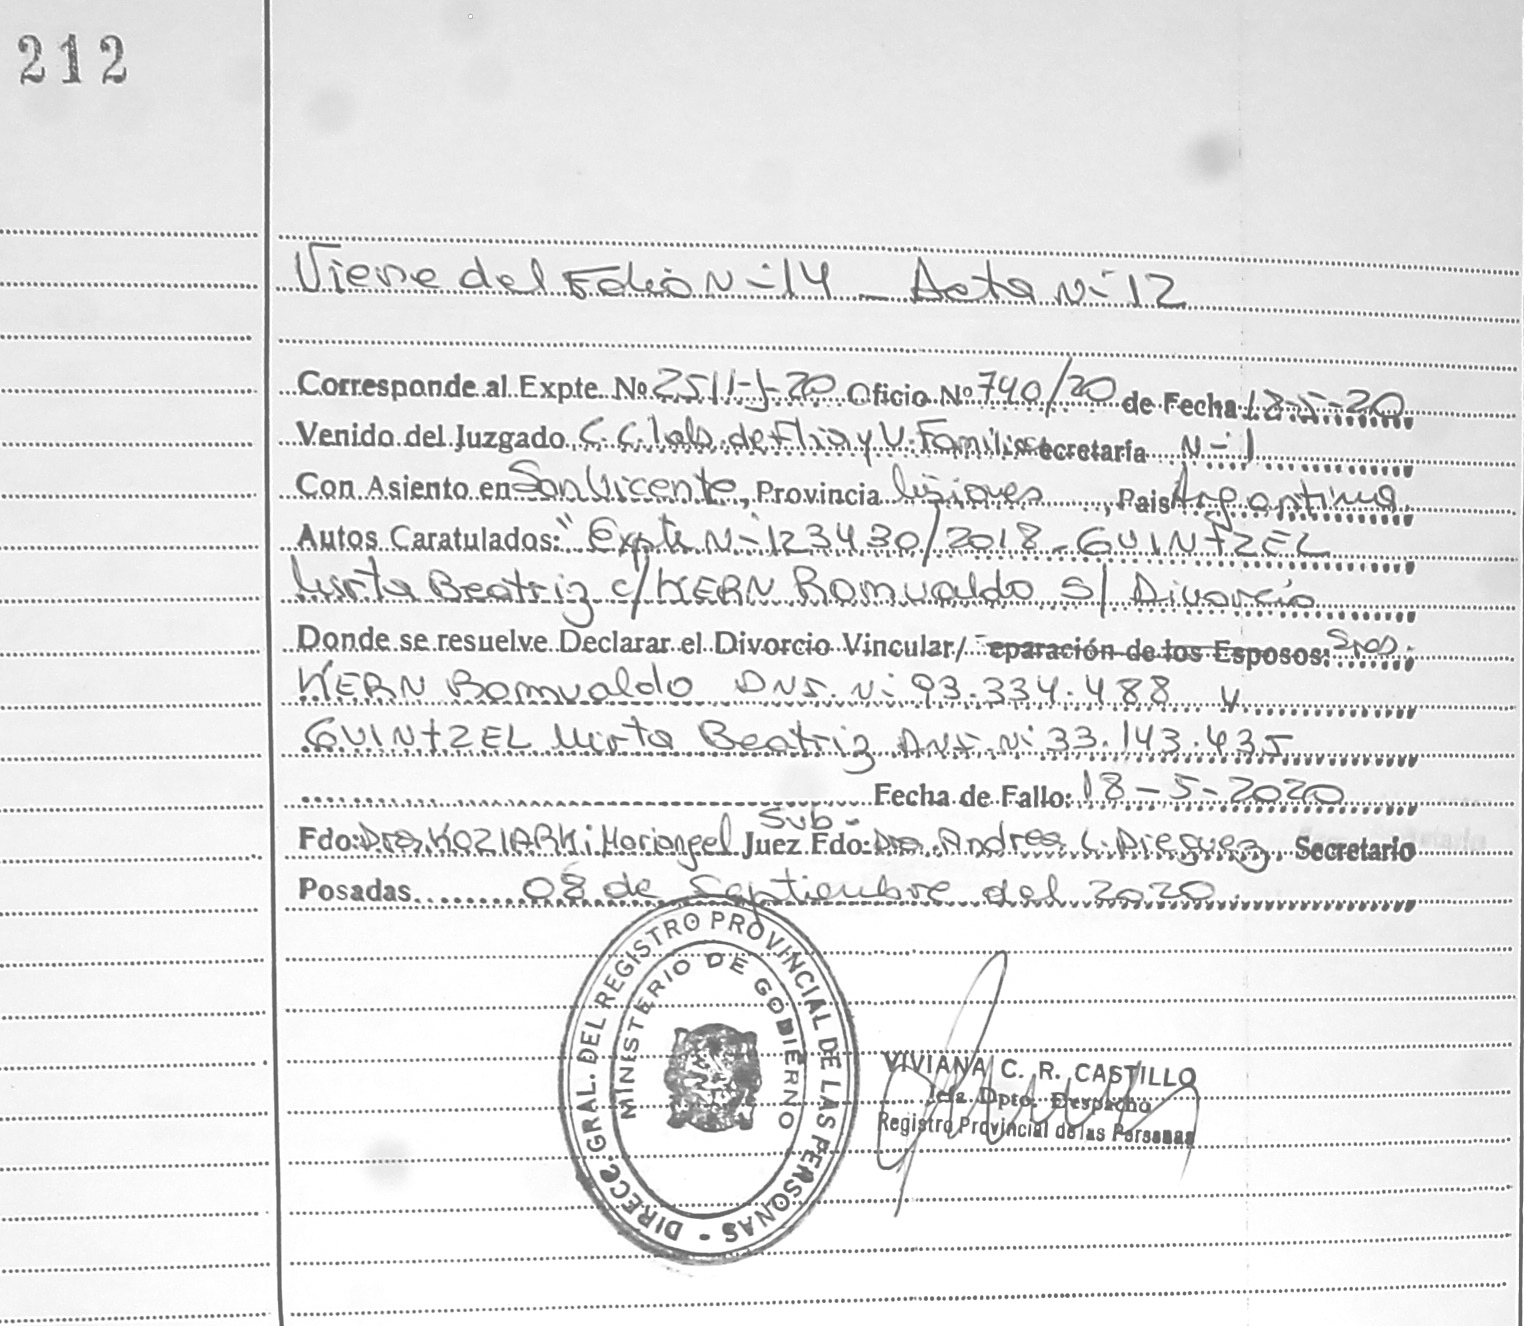 212
Viene del Folio N-14 _ Acta N-12
Corresponde al Expte. Nº 2511-J-20 Oficio Nº 740/20 de Fecha 18-5-20
Venido del Juzgado C.C. Lab. de Flia y V. Familia Secretaría N-1
Con Asiento en San Vicente, Provincia Misiones, Pais Argentina
Autos Caratulados: "Expte N-123430/2018 - GUINTZEL
Mirta Beatriz c/ KERN Romualdo S/ Divorcio
Donde se resuelve Declarar el Divorcio Vincular/ eparación de los Esposos: Sres.
KERN Romualdo DNI. N: 93.334.488 y
GUINTZEL Mirta Beatriz DNI. N: 33.143.435
Fecha de Fallo: 18-5-2020
Sub-
Fdo: Dra. KOZIARKi Mariangel Juez Fdo: Dr. Andres L. Dieguez. Secretario
Posadas 08 de Septiembre del 2020.
DIRECC. GRAL. DEL REGISTRO PROVINCIAL DE LAS PERSONAS -
MINISTERIO DE GOBIERNO
VIVIANA C. R. CASTILLO
Jefa Dpto. Despacho
Registro Provincial de las Personas